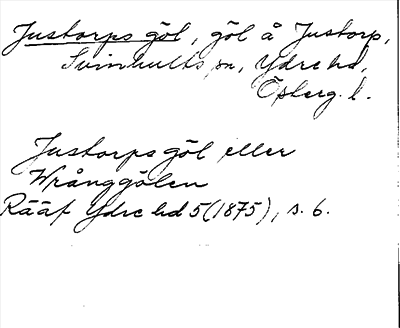 Justorps göl, göl å Justorp,
Svinhults sn, Ydre hd,
Österg. l.
Justorps göl eller
Wrånggölen
Rääf Ydre hd 5 (1875), s. 6.